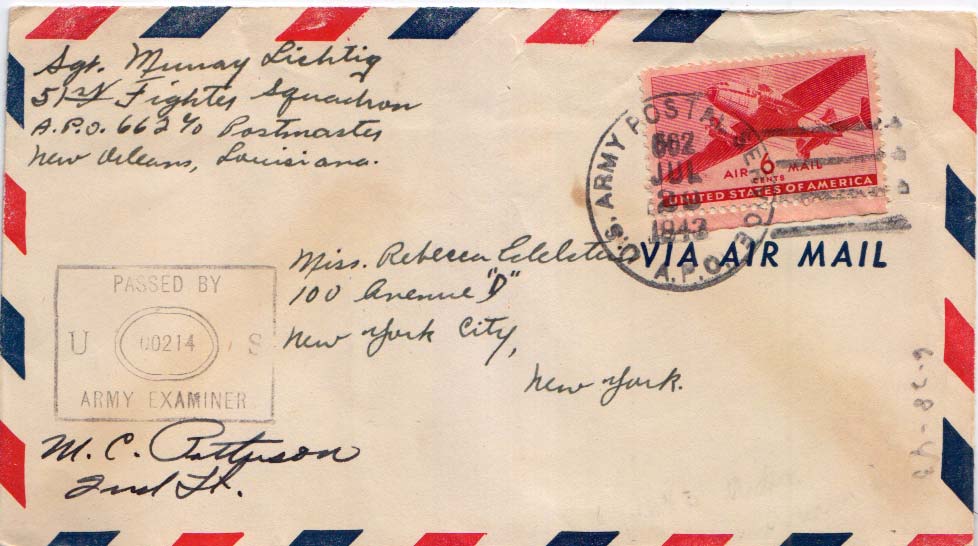 Sgt. Murray Lichtig
51st Fighter Squadron
A.P.O. 662 c/o Postmaster
New Orleans, Louisiana.
U.S. ARMY POSTAL SERVICE
662
JUL
1943
A.P.O.
AIR 6 MAIL
CENTS
UNITED STATES OF AMERICA
VIA AIR MAIL
Miss. Rebecca Edelstein
100 Avenue "D"
New York City,
New York.
PASSED BY
U 00214 S
ARMY EXAMINER
M. C. Patterson
2nd Lt.
6-28-43